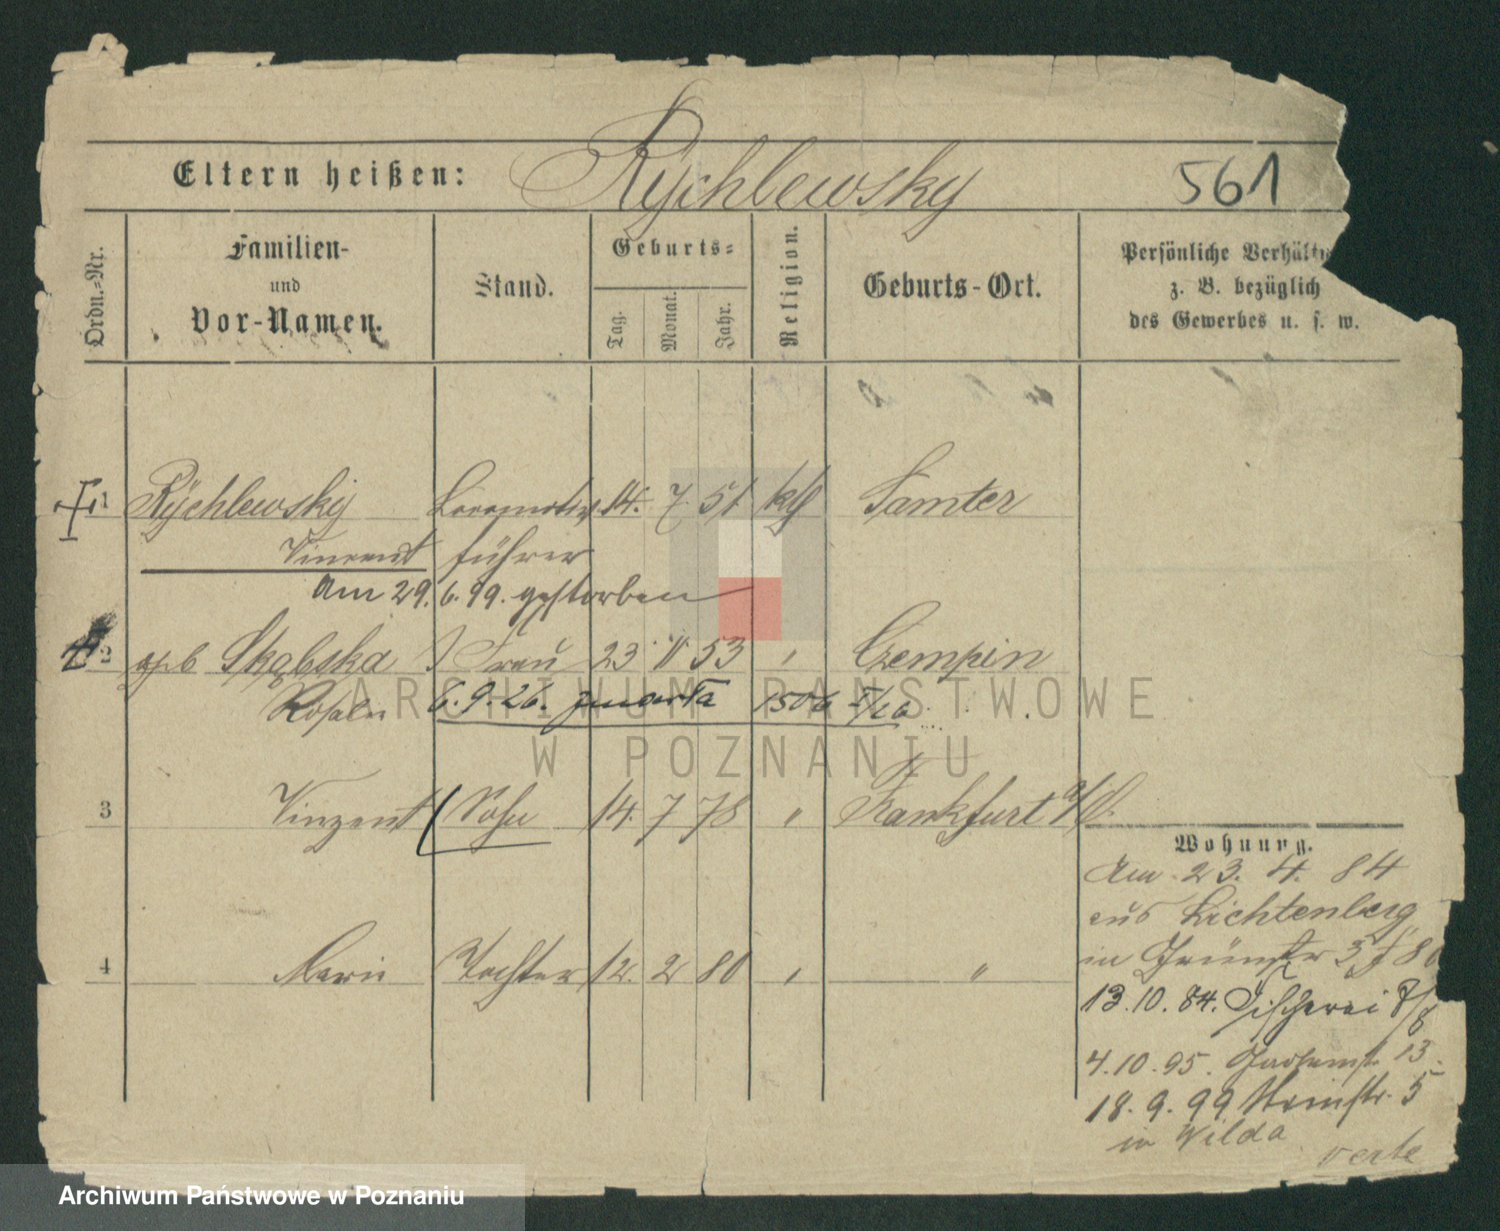 Eltern heißen: Rÿchlewsky 561
Ordn.-Nr.
Familien-
und
Vor-Namen.
Stand.
Geburts-
Tag.
Monat.
Jahr.
Religion.
Geburts-Ort.
Persönliche Verhält
z. B. bezüglich
des Gewerbes u. s. w.
1 Rÿchlewsky Locomotiv 14. 7 51 kth Samter
Vincent führer
am 29. 6. 99. gestorben
2 geb Skąbska Frau 23 11 53 " Czempin
Rosalie 6. 9. 26. zmarła 1506
3 Vinzent Sohn 14. 7 78 " Frankfurt a/O.
4 Marie Tochter 12. 2 80 " "
Wohnung.
Am 23. 4. 84
aus Lichtenberg
in
13. 10. 84. Fischerei
4. 10. 95. 13
18. 9. 99 5
in Wilda
verte
ARCHIWUM PAŃSTWOWE
W POZNANIU
Archiwum Państwowe w Poznaniu